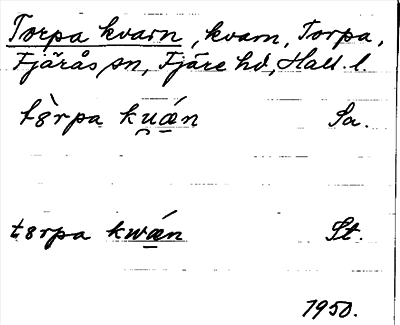 Torpa kvarn, kvarn, Torpa,
Fjärås sn, Fjäre hd, Hall. l.
tȣ̀rpa ku̯ǽn Sa.
tȣrpa kwǽn St.
1950.